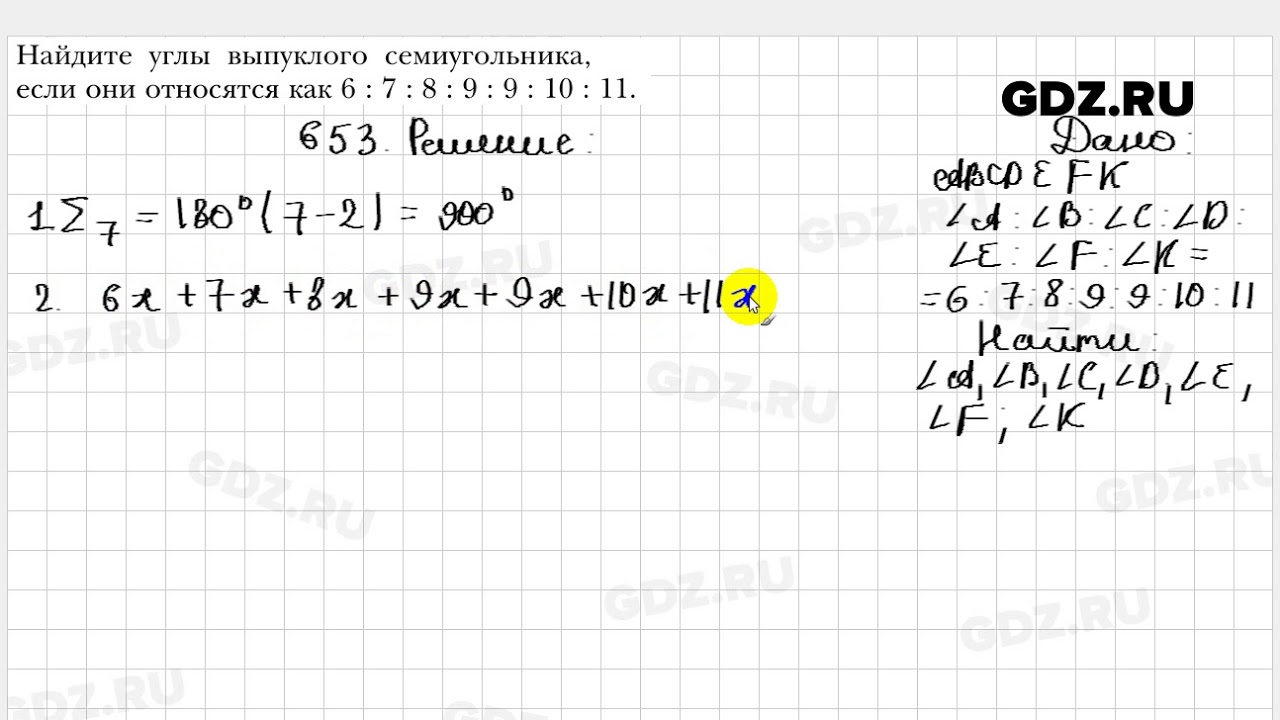 Найдите углы выпуклого семиугольника,
если они относятся как 6 : 7 : 8 : 9 : 9 : 10 : 11.
GDZ.RU
653. Решение:
1 Σ₇ = 180° (7-2) = 900°
2. 6x + 7x + 8x + 9x + 9x + 10x + 11x
Дано:
ABCDEFK
∠A : ∠B : ∠C : ∠D :
∠E : ∠F : ∠K =
= 6 : 7 : 8 : 9 : 9 : 10 : 11
Найти:
∠A, ∠B, ∠C, ∠D, ∠E,
∠F; ∠K
GDZ.RU
GDZ.RU
GDZ.RU
GDZ.RU
GDZ.RU
GDZ.RU
GDZ.RU
GDZ.RU
GDZ.RU